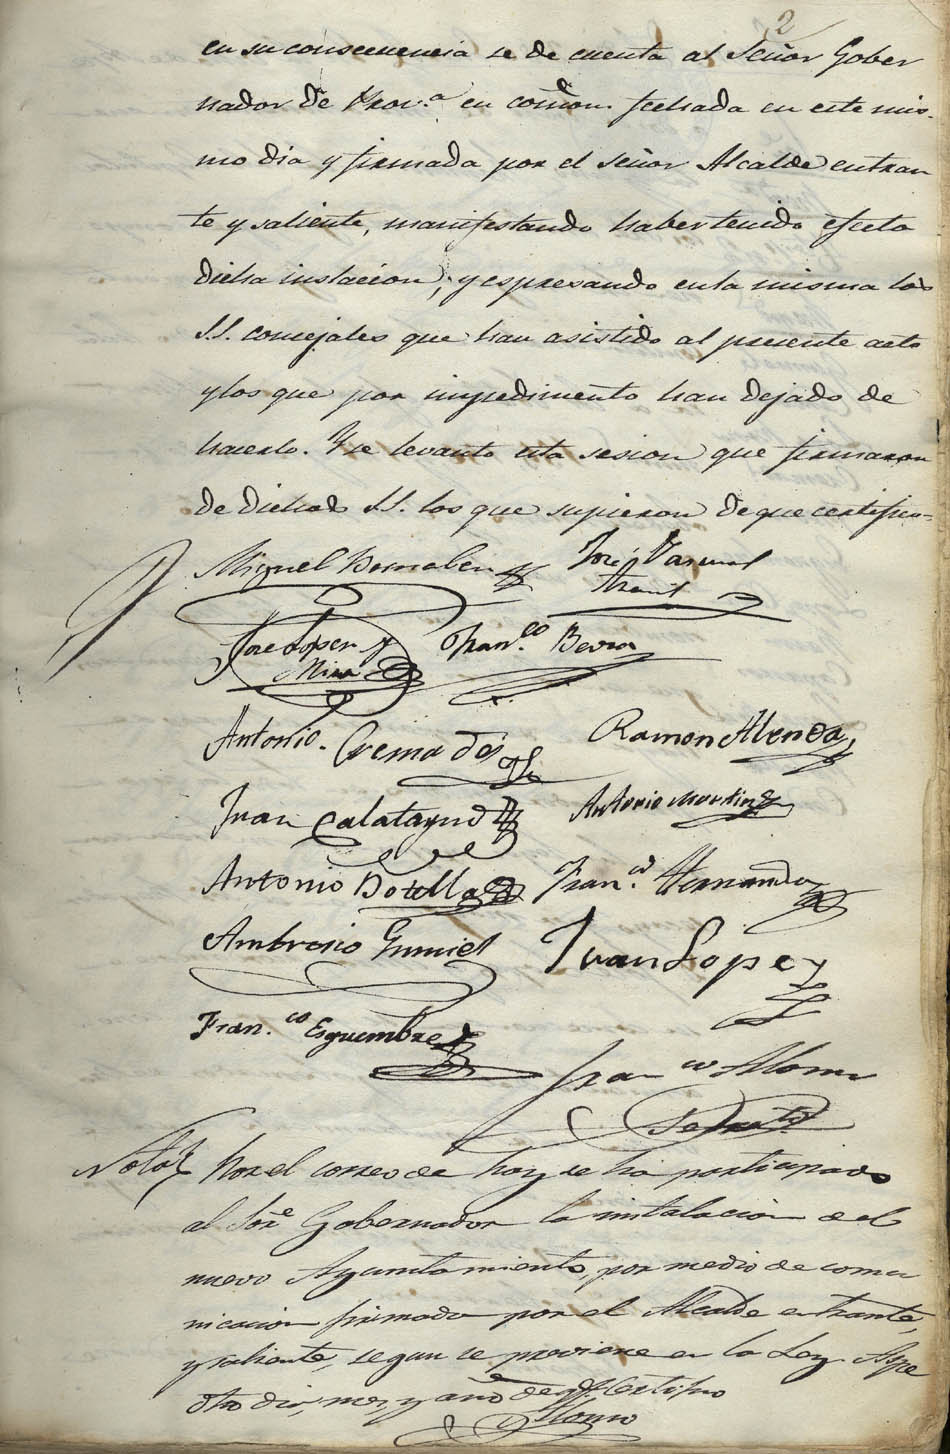 2
en su consecuencia se de cuenta al Señor Gober
nador de Prov.ª en comon. fechada en este mis-
mo dia y firmada por el señor Alcalde entran
te y saliente, manifestando haber tenido efecto
dicha instacion, y espresando en la misma los
S.S. concejales que han asistido al presente acto
y los que por impedimento han dejado de
hacerlo. Y se levanto esta sesion que firmaron
de dichos S.S. los que supieron de que certifico=
Miguel Bernabeu José Pascual
José Lopez y Fran.co Berra
Mira
Antonio Cremades Ramon Alenda
Juan Calatayud Antonio Martinez
Antonio Botella Fran.co Hernandez
Ambrosio Gumiel Juan Lopez
Fran.co Esquembre
Fran.co Alonso
Nota Por el correo de hoy se ha participado
al Sor. Gobernador la instalacion del
nuevo Ayuntamiento, por medio de comu
nicacion firmada por el Alcalde entrante,
y saliente, segun se previene en la Ley. Aspe
dho dia, mes, y año de q.e Certifico
Alonso